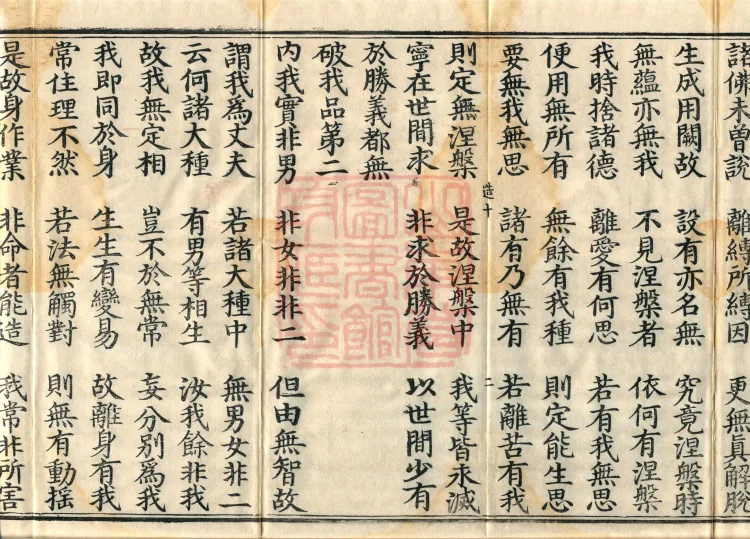 諸佛未曾說 離縛所縛因 更無眞解脫
生成用闕故 設有亦名無 究竟涅槃時
無蘊亦無我 不見涅槃者 依何有涅槃
我時捨諸德 離愛有何思 若有我無思
便用無所有 無餘有我種 則定能生思
要無我無思 諸有乃無有 若離苦有我
造十 二
則定無涅槃 是故涅槃中 我等皆永滅
寧在世間求 非求於勝義 以世間少有
於勝義都無
破我品第二
內我實非男 非女非非二 但由無智故
謂我爲丈夫 若諸大種中 無男女非二
云何諸大種 有男等相生 汝我餘非我
故我無定相 豈不於無常 妄分別爲我
我即同於身 生生有變易 故離身有我
常住理不然 若法無觸對 則無有動搖
是故身作業 非命者能造 我常非所害